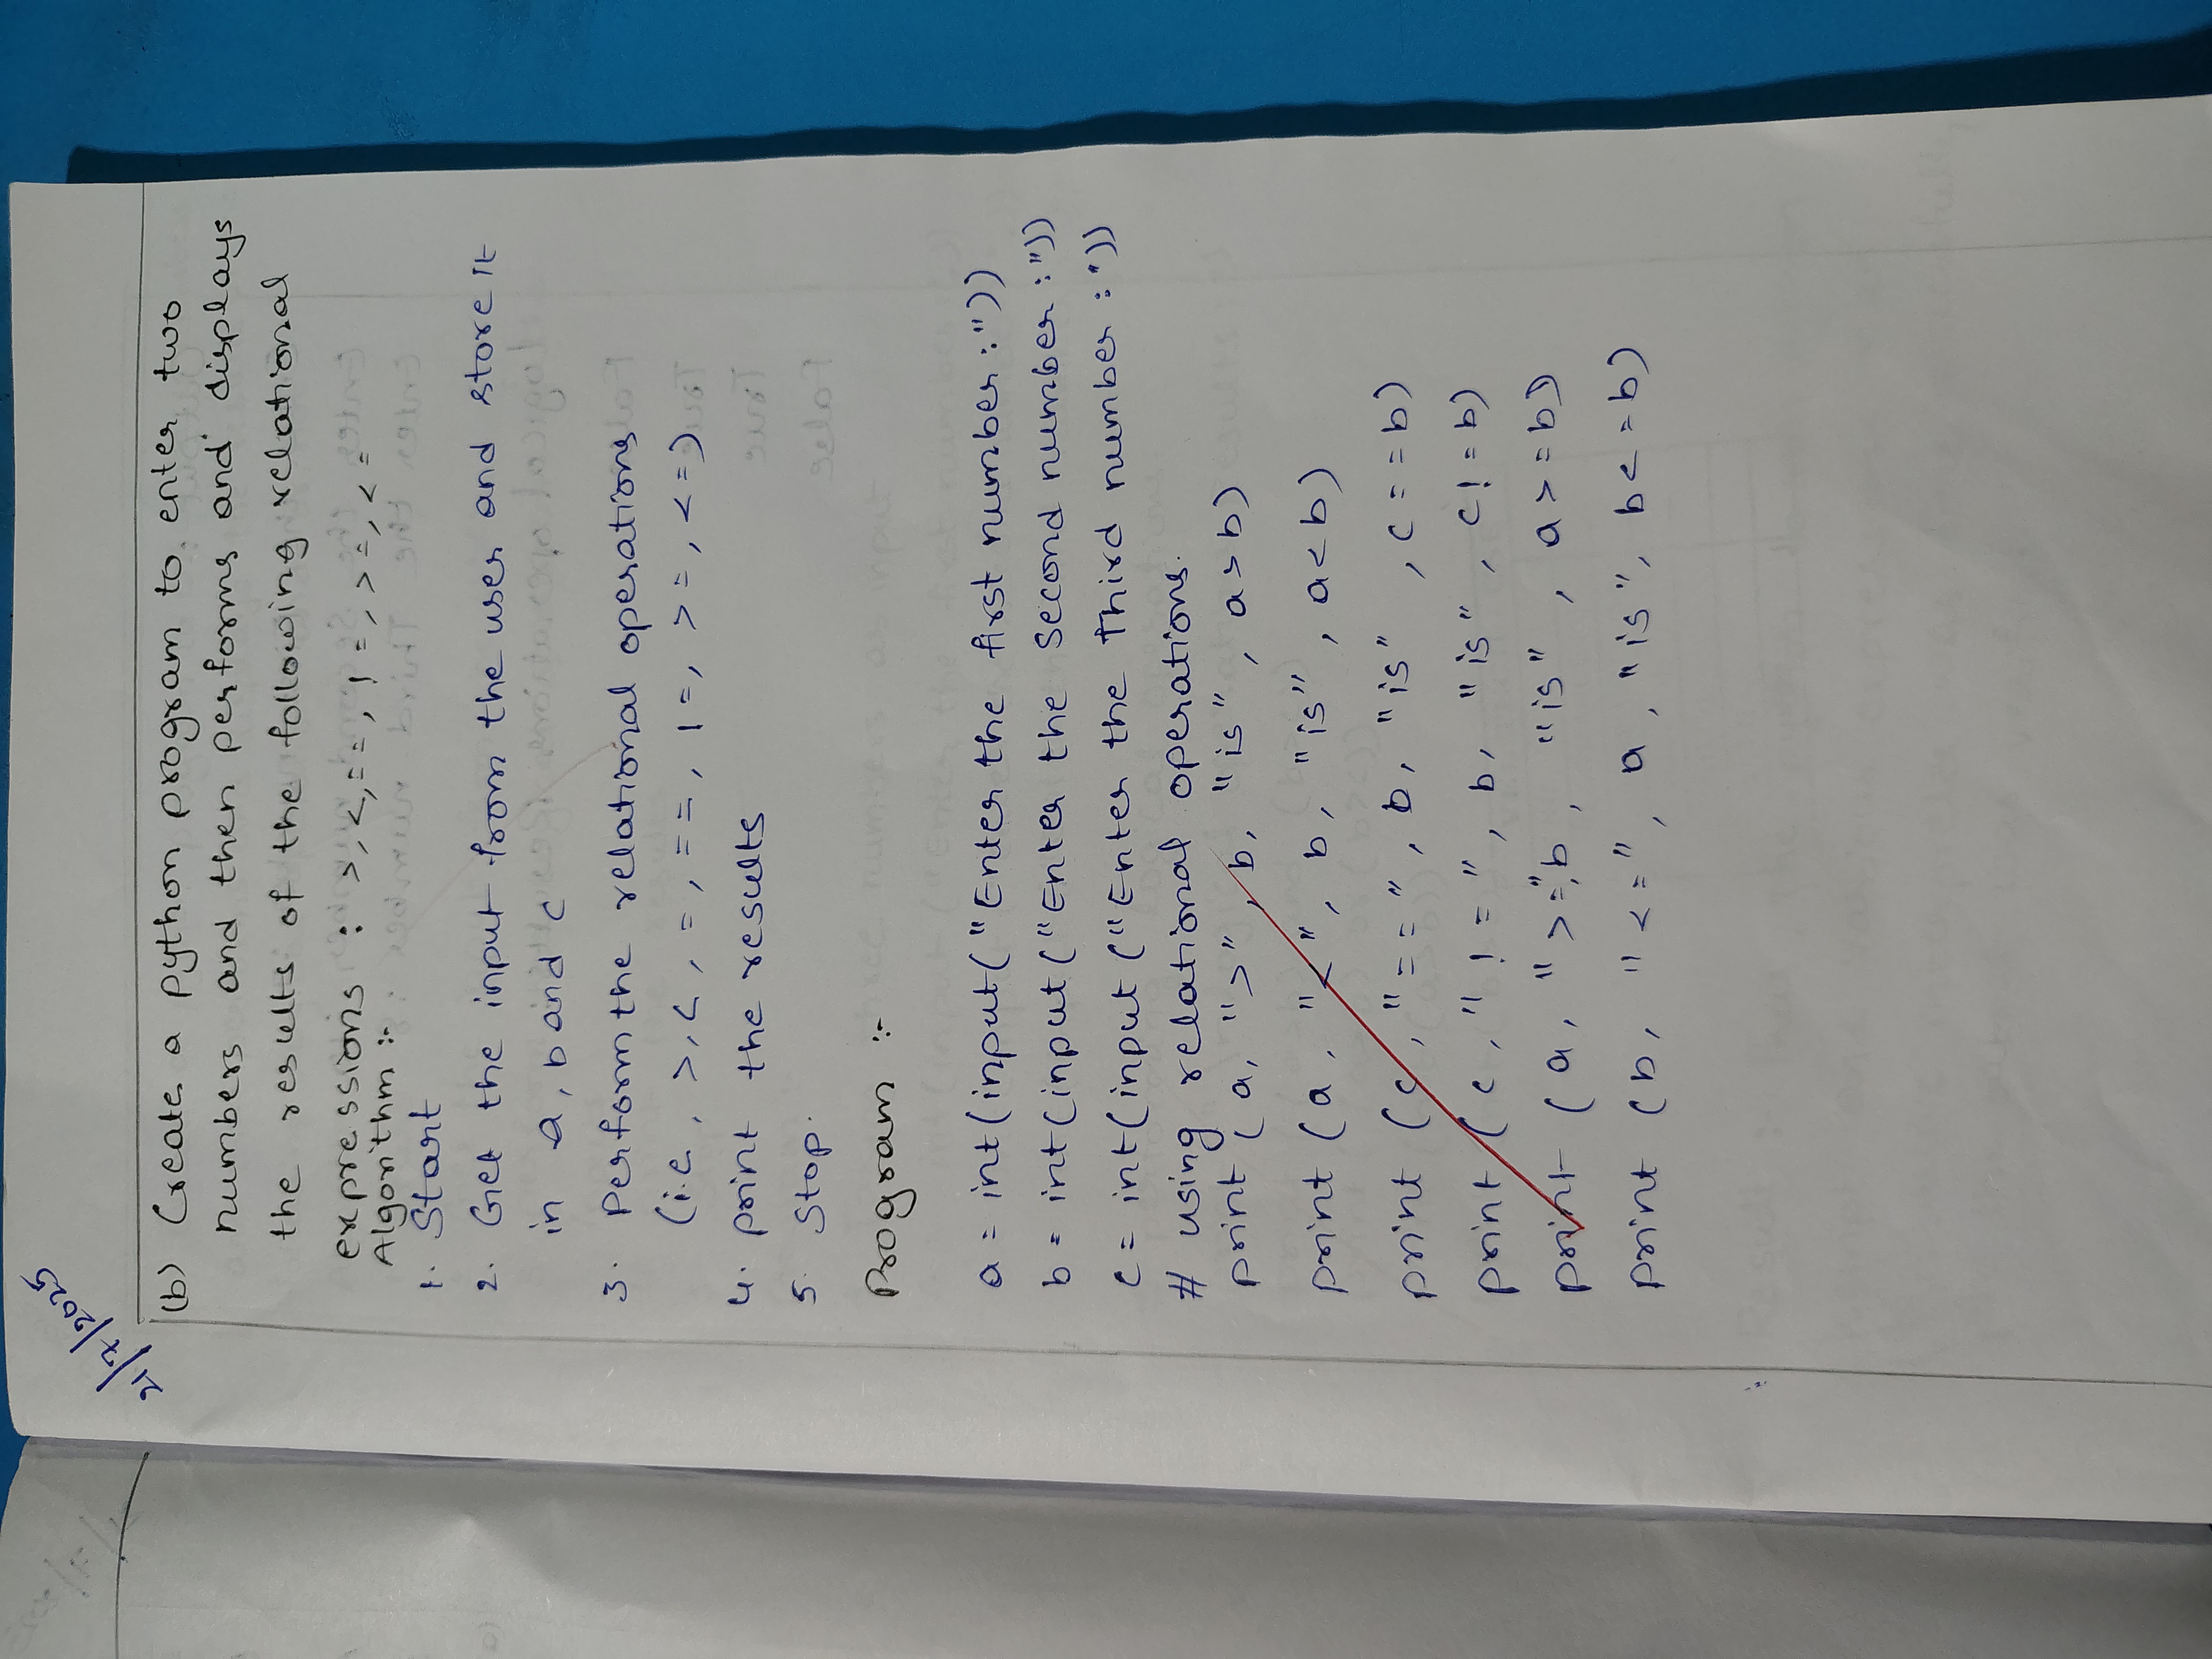 21/7/2025
(b) Create a python program to enter two
numbers and then performs and displays
the results of the following relational
expressions : >, <, ==, !=, >=, <=
Algorithm :-
1. Start
2. Get the input from the user and store it
in a, b and c
3. Perform the relational operations
(i.e, >, <, =, ==, !=, >=, <=)
4. print the results
5. Stop.
Program :-
a = int(input("Enter the first number :"))
b = int(input("Enter the Second number :"))
c = int(input("Enter the Third number :"))
# using relational operations.
print (a, ">", b, "is", a>b)
print (a, "<", b, "is", a<b)
print (c, "==", b, "is", c==b)
print (c, "!=", b, "is", c!=b)
print (a, ">=", b, "is", a>=b)
print (b, "<=", a, "is", b<=b)